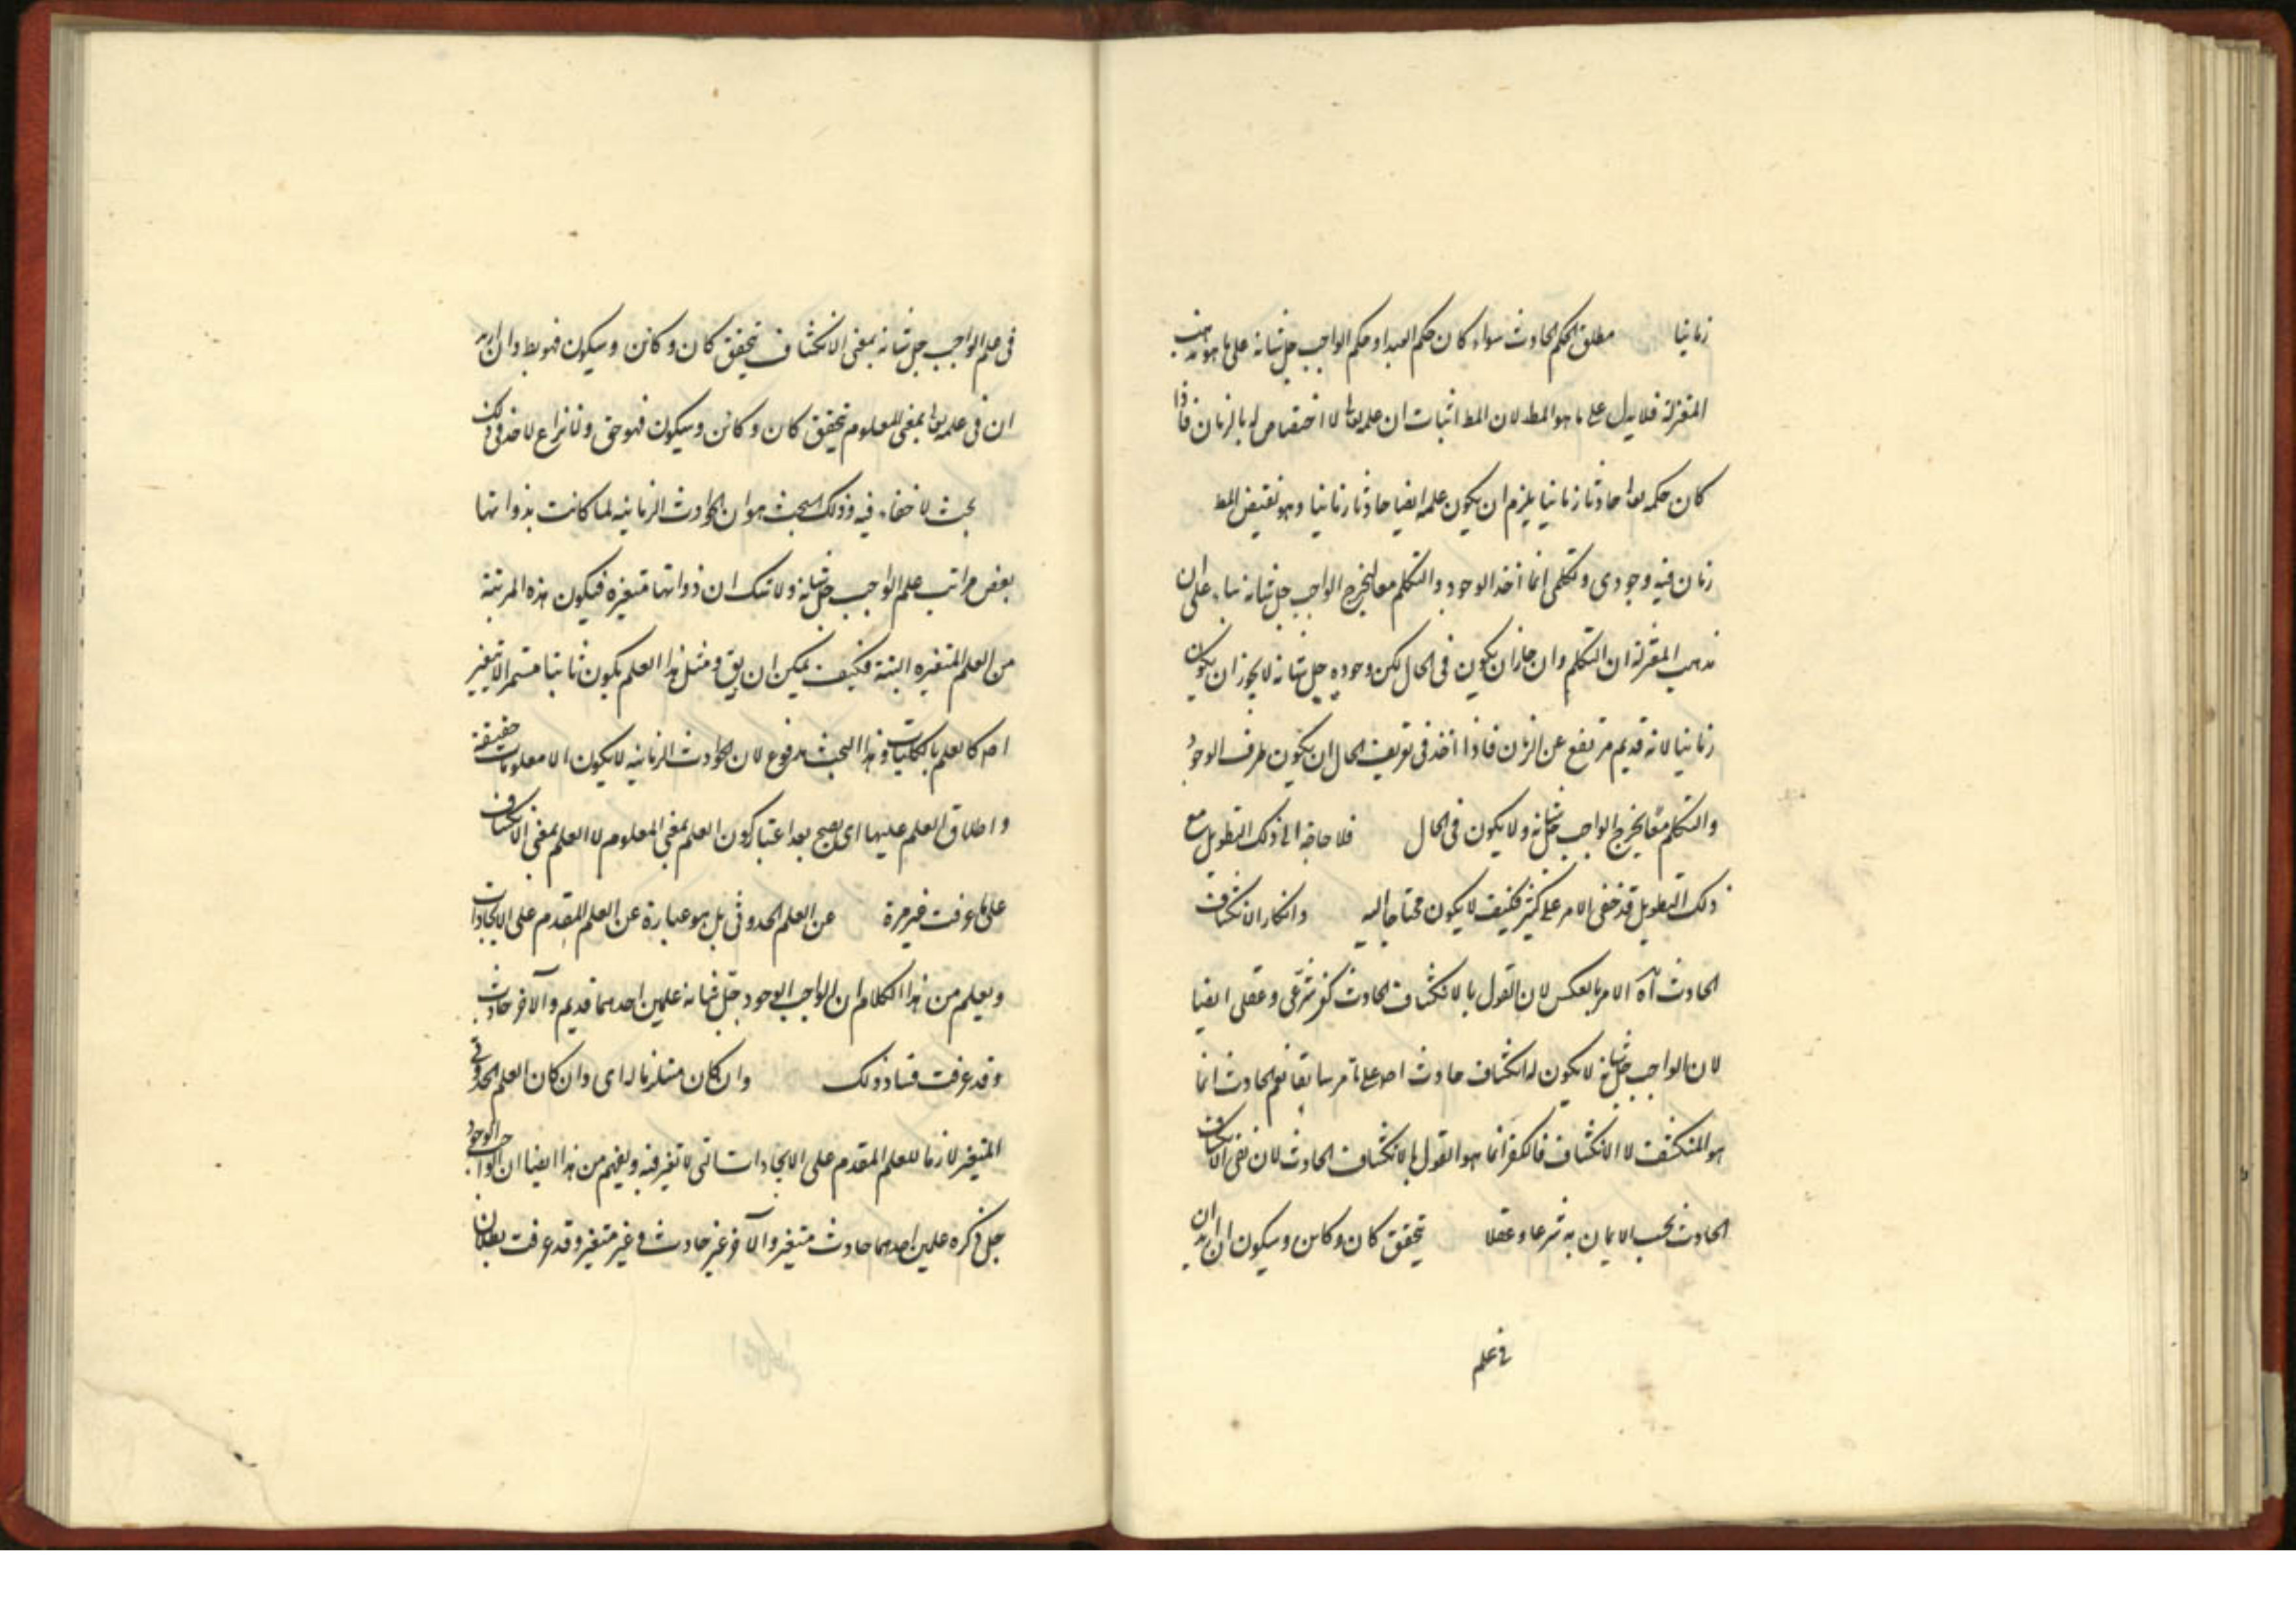 زمانيا مطلق الحكم الحادث سواء كان حكم العبد او حكم الواجب جل شانه على ما هو مذهب
المعتزلة فلا يدل على ما هو المط لان المط اثبات ان علمه تعالى لا اختصاص له بالزمان فاذا
كان حكمه تعالى حادثا زمانيا يلزم ان يكون علمه ايضا حادثا زمانيا وهو نقيض المط
زمان فيه وجودى وتكلمى انما اخذ الوجود والتكلم معا ليخرج الواجب جل شانه بناء على ان
مذهب المعتزلة ان التكلم وان جاز ان يكون فى الحال لكن وجوده جل شانه لا يجوز ان يكون
زمانيا لانه قديم مرتفع عن الزمان فاذا اخذ فى تعريف الحال ان يكون ظرف الوجود
والتكلم معا يخرج الواجب جل شانه ولا يكون فى الحال فلا حاجة الى ذلك التطويل مع
ذلك التطويل قد خفى الامر على كثير فكيف لا يكون محتاجا اليه وانكار الانكشاف
الحادث اه الامر بالعكس لان القول بالانكشاف الحادث كفر شرعى وعقلى ايضا
لان الواجب جل شانه لا يكون له انكشاف حادث اصلا على ما مر سابقا نعم الحادث انما
هو المنكشف لا الانكشاف فالكفر انما هو القول بالانكشاف الحادث لان نفى الانكشاف
الحادث يجب الايمان به شرعا وعقلا تحقق كان وكائن وسيكون ان اريد ان
فى علم
فى علم الواجب جل شانه بمعنى الانكشاف تحقق كان وكائن وسيكون فهو بط وان اريد
ان فى علمه تعالى بمعنى المعلوم تحقق كان وكائن وسيكون فهو حق ولا نزاع لاحد فى ذلك
بحث لا خفاء فيه وذلك البحث هو ان الحوادث الزمانيه لما كانت بذواتها
بعض مراتب علم الواجب جل شانه ولا شك ان ذواتها متغيره فيكون هذه المرتبة
من العلم المتغيره البتة فكيف يمكن ان يق ومثل هذا العلم يكون ثابتا مستمرا لا يتغير
اصلا كالعلم بالكليات وهذا البحث مدفوع لان الحوادث الزمانيه لا يكون الا معلومات حقيقة
واطلاق العلم عليها اى يصح بعد اعتبار كون العلم بمعنى المعلوم لا العلم بمعنى الانكشاف
على ما عرفت غير مرة عن العلم الحدوثى بل هو عبارة عن العلم المقدم على الايجادات
ويعلم من هذا الكلام ان الواجب الوجود جل شانه علمين احدهما قديم والاخر حادث
وقد عرفت فساد ذلك وان كان مستلزما له اى وان كان العلم الحدوثى
المتغير لازما للعلم المقدم على الايجادات التى لا تغير فيه ويفهم من هذا ايضا ان الواجب الوجود
جل ذكره علمين احدهما حادث متغير والاخر غير حادث وغير متغير وقد عرفت بطلان